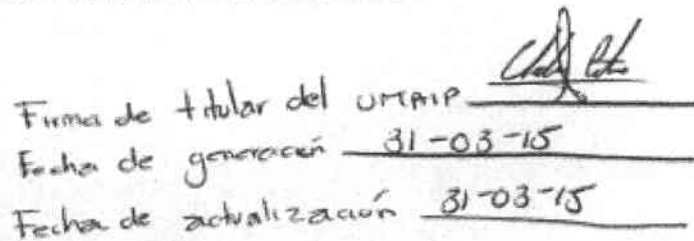 Firma de titular del UMAIP
Fecha de generación 31-03-15
Fecha de actualización 31-03-15